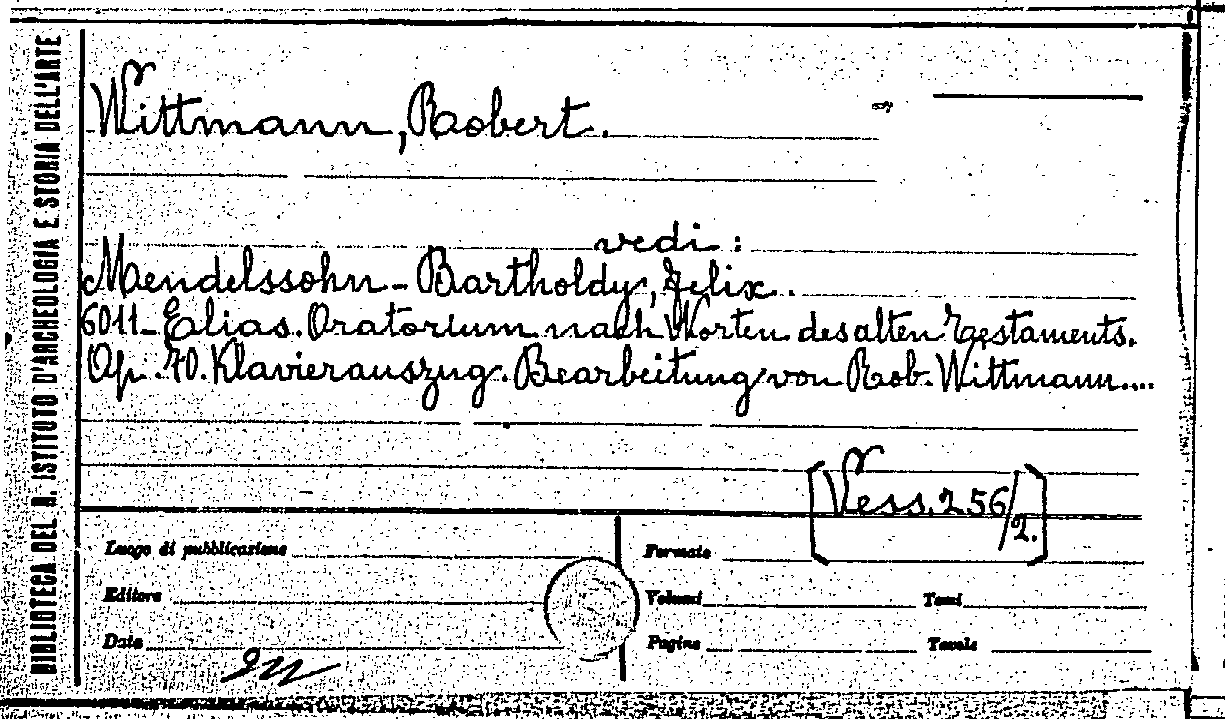 BIBLIOTECA DEL R. ISTITUTO D'ARCHEOLOGIA E STORIA DELL'ARTE
Wittmann, Robert.
vedi :
Mendelssohn - Bartholdy, Felix.
6011 - Elias. Oratorium nach Worten des alten Testaments.
Op. 70. Klavierauszug. Bearbeitung von Rob. Wittmann....
[Vess. 256/2.]
Luogo di pubblicazione
Formato
Editore
Volumi
Tomi
Data
Pagine
Tavole